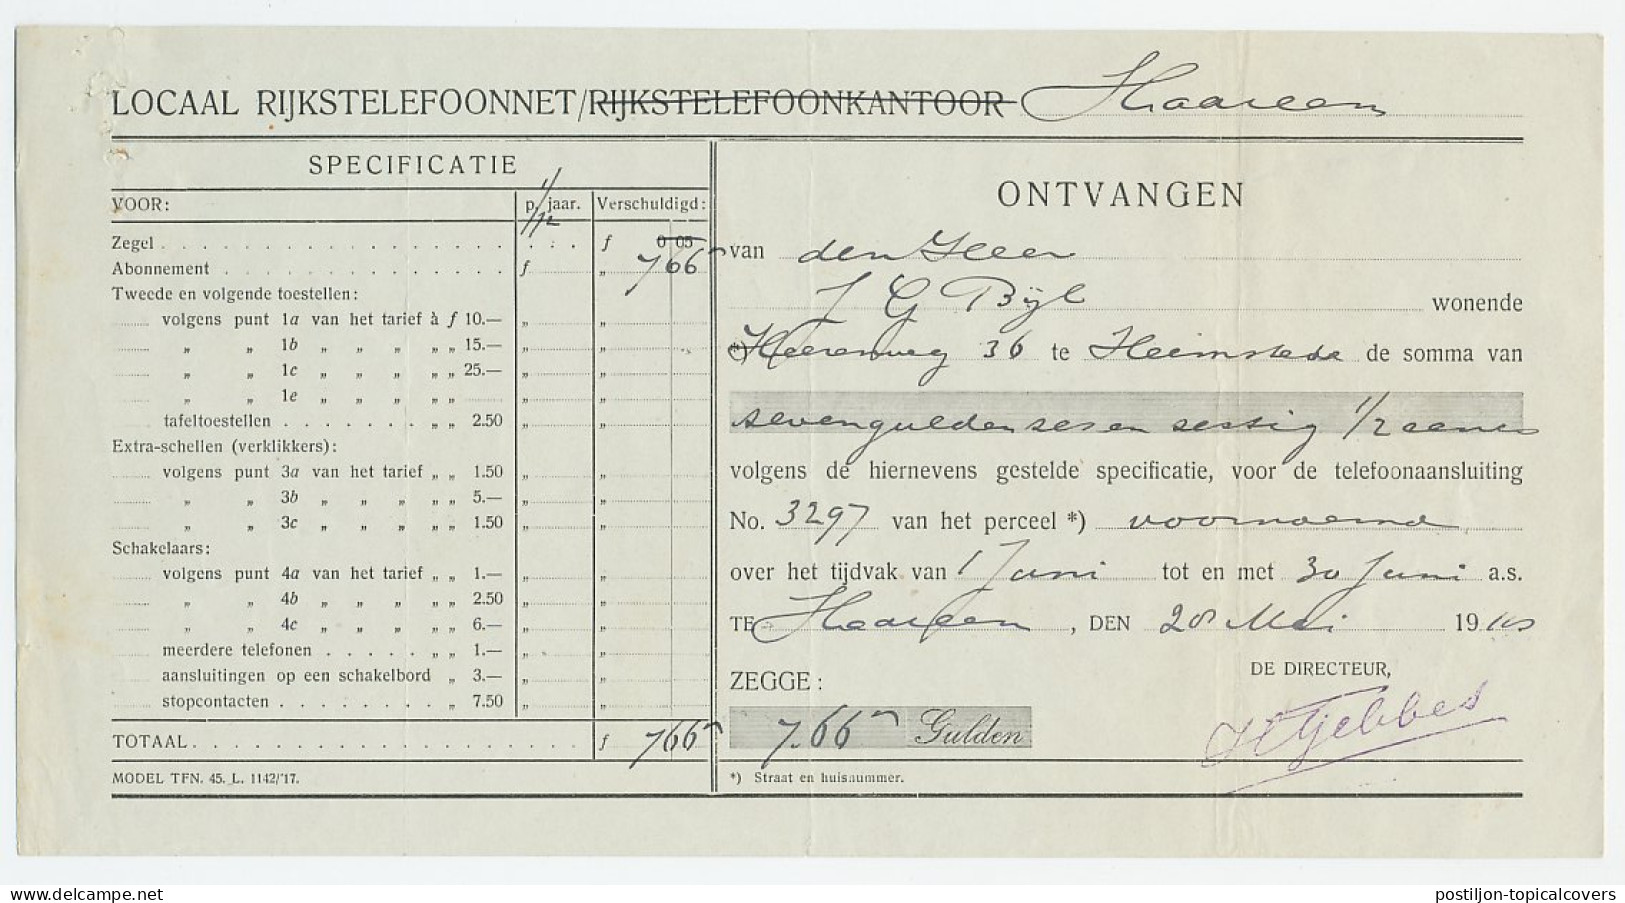 LOCAAL RIJKSTELEFOONNET/RIJKSTELEFOONKANTOOR Haarlem
SPECIFICATIE
VOOR: p. 1/12 jaar. Verschuldigd:
Zegel f 0 05
Abonnement f „ 7 66⁵
Tweede en volgende toestellen:
volgens punt 1a van het tarief à f 10.— „ „
„ „ 1b „ „ „ „ „ 15.— „ „
„ „ 1c „ „ „ „ „ 25.— „ „
„ „ 1e „ „ „ „ „ „ „
tafeltoestellen „ „ 2.50 „ „
Extra-schellen (verklikkers):
volgens punt 3a van het tarief „ „ 1.50 „ „
„ „ 3b „ „ „ „ „ 5.— „ „
„ „ 3c „ „ „ „ „ 1.50 „ „
Schakelaars:
volgens punt 4a van het tarief „ „ 1.— „ „
„ „ 4b „ „ „ „ „ 2.50 „ „
„ „ 4c „ „ „ „ „ 6.— „ „
meerdere telefonen „ „ 1.— „ „
aansluitingen op een schakelbord „ 3.— „ „
stopcontacten „ 7.50 „ „
TOTAAL f 7 66⁵
MODEL TFN. 45. L. 1142/'17.
ONTVANGEN
van den Heer
J G Bijl wonende
*) Heerenweg 36 te Heemstede de somma van
zevengulden zes en zestig 1/2 cent
volgens de hiernevens gestelde specificatie, voor de telefoonaansluiting
No. 3297 van het perceel *) voornoemd
over het tijdvak van 1 Juni tot en met 30 Juni a.s.
TE Haarlem, DEN 28 Mei 19
DE DIRECTEUR,
ZEGGE:
7.66⁵ Gulden
*) Straat en huisnummer.
delcampe.net
postiljon-topicalcovers